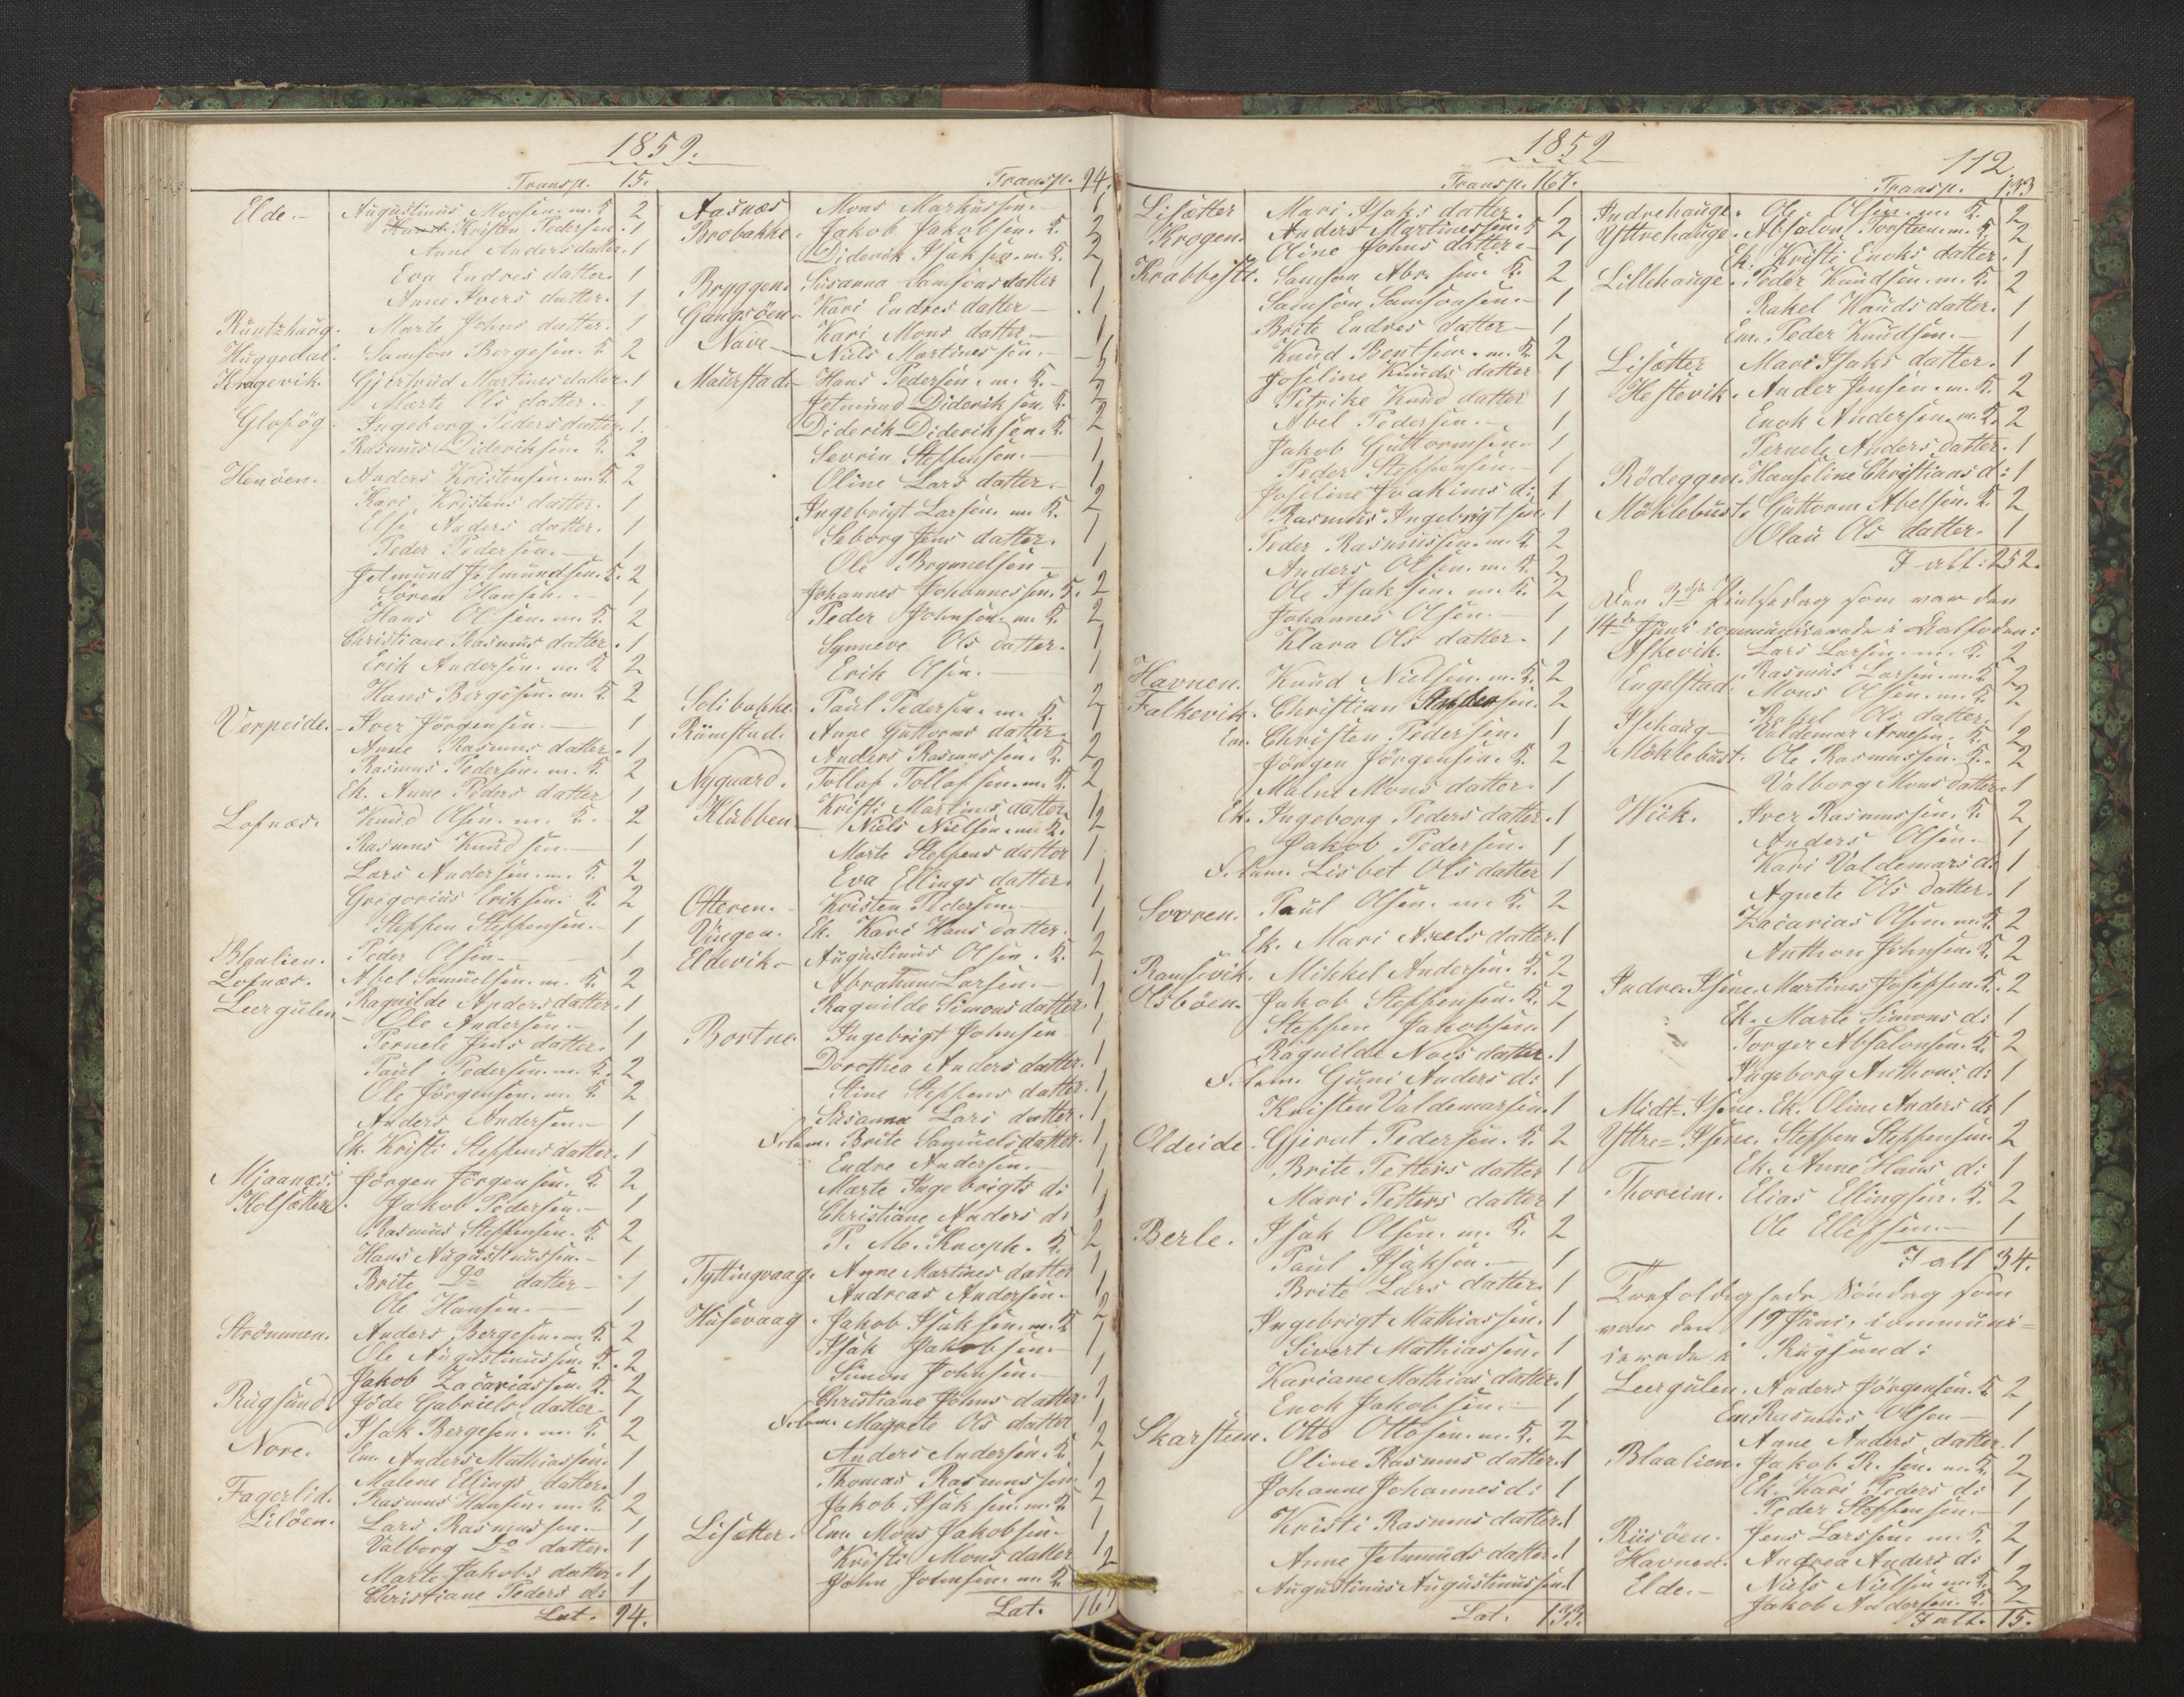 1859.
Transp. 15.
Elde. Augustinus Monsen. m. K. 2
Kristen Pedersen. 1
Anne Anders datter. 1
Eva Endres datter. 1
Anne Ivers datter. 1
Runtzhaug. Marte Johns datter. 1
Huggedal. Samson Bergesen. K. 2
Kragevik. Gjertrud Martines datter. 1
Marte Ols datter. 1
Glopög. Ingeborg Peders datter. 1.
Rasmus Dideriksen. K. 2
Henöen. Anders Kristensen. m. K. 2
Kari Kristens datter. 1
Anders datter. 1
Peder Pedersen. 1
Jetmund Jetmundsen. K. 2
Sören Hansen. 1
Hans Olsen. m. K. 2
Christiane Rasmus datter. 1
Erik Andersen. m. K. 2
Hans Bergesen. m. K. 2
Verpeide. Iver Jörgensen. 1
Anne Rasmus datter. 1
Rasmus Pedersen. m. K. 2
Ek. Anne Peders datter 1
Lofnæs. Knud Olsen. m. K. 2
Rasmus Knudsen. 1
Lars Andersen. m. K. 2
Gregorius Eriksen. K. 2
Steffen Steffensen. 1
Blaalien. Peder Olsen. 1
Lofnæs. Abel Samuelsen. m. K. 2
Leergulen Ragnilde Anders datter. 1
Ole Andersen. 1
Pernele Jens datter. 1
Paul Pedersen. m. K. 2
Ole Jörgensen. m. K. 2
Anders Andersen. 1
Ek. Kristi Steffens datter. 1
Mjaanæs. Jörgen Jörgensen. K. 2
Holsætter. Jakob Pedersen. 1
Rasmus Steffensen. K. 2
Hans Augustinussen. 1
Brite Do datter 1
Ole Hansen. 1
Strömmen. Anders Bergesen. m. K. 2
Ole Augustinussen. K. 2
Jakob Zacariassen. K. 2
Rugsund. Jöde Gabriels datter. 1
Isak Bergesen. m. K. 2
Nore. Em. Anders Mathiassen. 1
Malene Ellings datter. 1
Fagerlid. Rasmus Hansen. m. K. 2
Liløen. Lars Rasmussen. 1
Valborg Do datter. 1
Marte Jakobs datter. 1
Christiane Peders d: 1
Lat. 94.
Transp. 94.
Aasnæs Mons Markussen. 1
Brobakke. Jakob Jakobsen. K. 2
Diderik Isaksen. m. K. 2
Bryggen. Susanna Samsons datter 1
Gangsöen. Kari Endres datter 1
Nave Kari Mons datter. 1
Niels Martinessen. 1
Maurstad. Hans Pedersen. m. K. 2
Jetmund Dideriksen. K. 2
Diderik Dideriksen. K. 2
Sevrin Steffensen. 1
Oline Lars datter. 1
Ingebrigt Larsen. m. K. 2
Seborg Jens datter. 1
Ole Brynnelsen 1
Johannes Johannessen. K. 2
Peder Johnsen. m. K. 2
Synneve Ols datter. 1
Erik Olsen. 1
Solibakke. Paul Pedersen. m. K. 2
Rumstad. Anne Guttorms datter. 1
Anders Rasmussen. K. 2
Nygaard. Tollaf Tollafsen. m. K. 2
Klubben Kristi Martines datter. 1
Niels Nielsen. m. K. 2
Marte Steffens datter 1
Eva Ellings datter. 1
Otteren. Kristen Pedersen. 1
Vingen. Ek. Kari Hans datter. 1
Eldevik. Augustinus Olsen. K. 2
Abraham Larsen. 1
Ragnilde Simons datter. 1
Bortne. Ingebrigt Johnsen 1
Dorothea Anders datter. 1
Stine Steffens datter. 1
Susanna Lars datter. 1
Brite Samuels datter. 1
Endre Andersen. 1
Marte Ingebrigts d: 1
Christiane Anders d: 1
P. M. Knoph. K. 2
Tyttingvaag. Anne Martines datter 1
Andreas Andersen. 1
Husevaag. Jakob Isaksen. m. K. 2
Isak Jakobsen. 1
Simon Johnsen. 1
Christiane Johns datter 1
Magrete Ols datter 1
Anders Andersen. K. 2
Thomas Rasmussen 1
Jakob Isaksen. m. K. 2
Lisætter. Em. Mons Jakobsen. 1
Kristi Mons datter 1
John Johnsen. m. K. 2
Lat. 167
1859
112
Transp. 167.
Lisætter Mari Isaks datter. 1
Krogen. Anders Martinessen. K. 2
Oline Johns datter. 1
Krabbestt. Samson Abr. sen. K. 2
Samson Samsonsen. 1
Brite Endres datter 1
Knud Bentsen. m. K. 2
Joseline Knuds datter 1
Petrike Knud datter 1
Abel Pedersen. 1
Jakob Guttormsen. 1
Peder Steffensen. 1
Joseline Joakims d: 1
Rasmus Ingebrigtsen. 1
Peder Rasmussen. m. K. 2
Anders Olsen. m. K. 2
Ole Isaksen. m. K. 2
Johannes Olsen. 1
Klara Ols datter. 1
Havnen. Knud Nielsen. m. K. 2
Falkevik. Christian 2
Em. Christen Pedersen. 1
Jörgen Jörgensen. K. 2
Malne Mons datter. 1
Ek. Ingeborg Peders datter. 1
Jakob Pedersen. 1
Lisbet Ols datter 1
Sorren. Paul Olsen. m. K. 2
Ek. Mari Axels datter. 1
Ramsevik. Mikkel Andersen. K. 2
Olsböen. Jakob Steffensen. K. 2
Steffen Jakobsen. 1
Ragnilde Noes datter. 1
Guni Anders d: 1
Kristen Valdemarsen. 1
Oldeide. Gjerat Pedersen. K. 2
Brite Petters datter 1
Mari Petters datter 1
Berle. Isak Olsen. m. K. 2
Paul Isaksen. 1
Brite Lars datter. 1
Ingebrigt Mathiassen. 1
Sivert Mathiassen. 1
Kariane Mathias datter. 1
Enok Jakobsen. 1
Skarsteen. Otto Ottosen. m. K. 2
Oline Rasmus datter. 1
Johanne Johannes d: 1
Kristi Rasmus datter. 1
Anne Jetmunds datter. 1
Augustinus Augustinussen 1
Lat. 133.
Transp. 133
Indrehauge. Ole Olsen. m. K. 2
Yttrehauge. Absalon Torsteen. m. K. 2
Ek. Kristi Enoks datter. 1
Lillehauge. Peder Knudsen. m. K. 2
Rakel Knuds datter. 1
Em. Peder Knudsen. 1
Lisætter Mari Isaks datter. 1
Hestevik. Ander Jensen. m. K. 2
Enok Andersen. m. K. 2
Pernele Anders datter. 1
Rödeggen. Hanseline Christians d: 1
Möklebust. Guttorm Abelsen. K. 2
Olau Ols datter. 1
I alt: 252.
Den 3die Pintsedag som var den
14de Juni communicerede i Dalsoden:
Askevik. Lars Larsen. m. K. 2
Rasmus Larsen. m. K. 2
Engelstad. Mons Olsen. m. K. 2
Rakel Ols datter. 1
Isehaug Valdemar Arnesen. K. 2
Möklebust. Ole Rasmussen. K. 2
Valborg Mons datter. 1
Wiik. Iver Rasmussen. K. 2
Anders Olsen. 1
Kari Valdemars d: 1
Agnete Ols datter. 1
Zacarias Olsen. m. K. 2
Anthon Johnsen. K. 2
Indre-Isene. Martines Josefsen. K. 2
Ek. Marte Simons d: 1
Torger Absalonsen. K. 2
Ingeborg Anthons d: 1
Midt-Isene. Ek. Oline Anders d: 1
Yttre=Isene. Steffen Steffensen 2
Ek. Anne Hans d: 1
Thoreim. Elias Ellingsen. K. 2
Ole Ellefsen. 1
I alt 34.
Trefoldigheds Söndag som
var den 19 Juni, communi=
cerede i Rugsund:
Leergulen. Anders Jörgensen. K. 2
Em. Rasmus Olsen 1
Anne Anders datter. 1
Blaalien. Jakob R. sen. m. K. 2
Ek. Kari Peders d: 1
Peder Steffensen. 1
Riisöen. Jens Larssen. m. K. 2
Havnen. Andrea Anders d: 1
Elde. Niels Nielsen m. K. 2
Jakob Andersen. K. 2
I alt. 15.